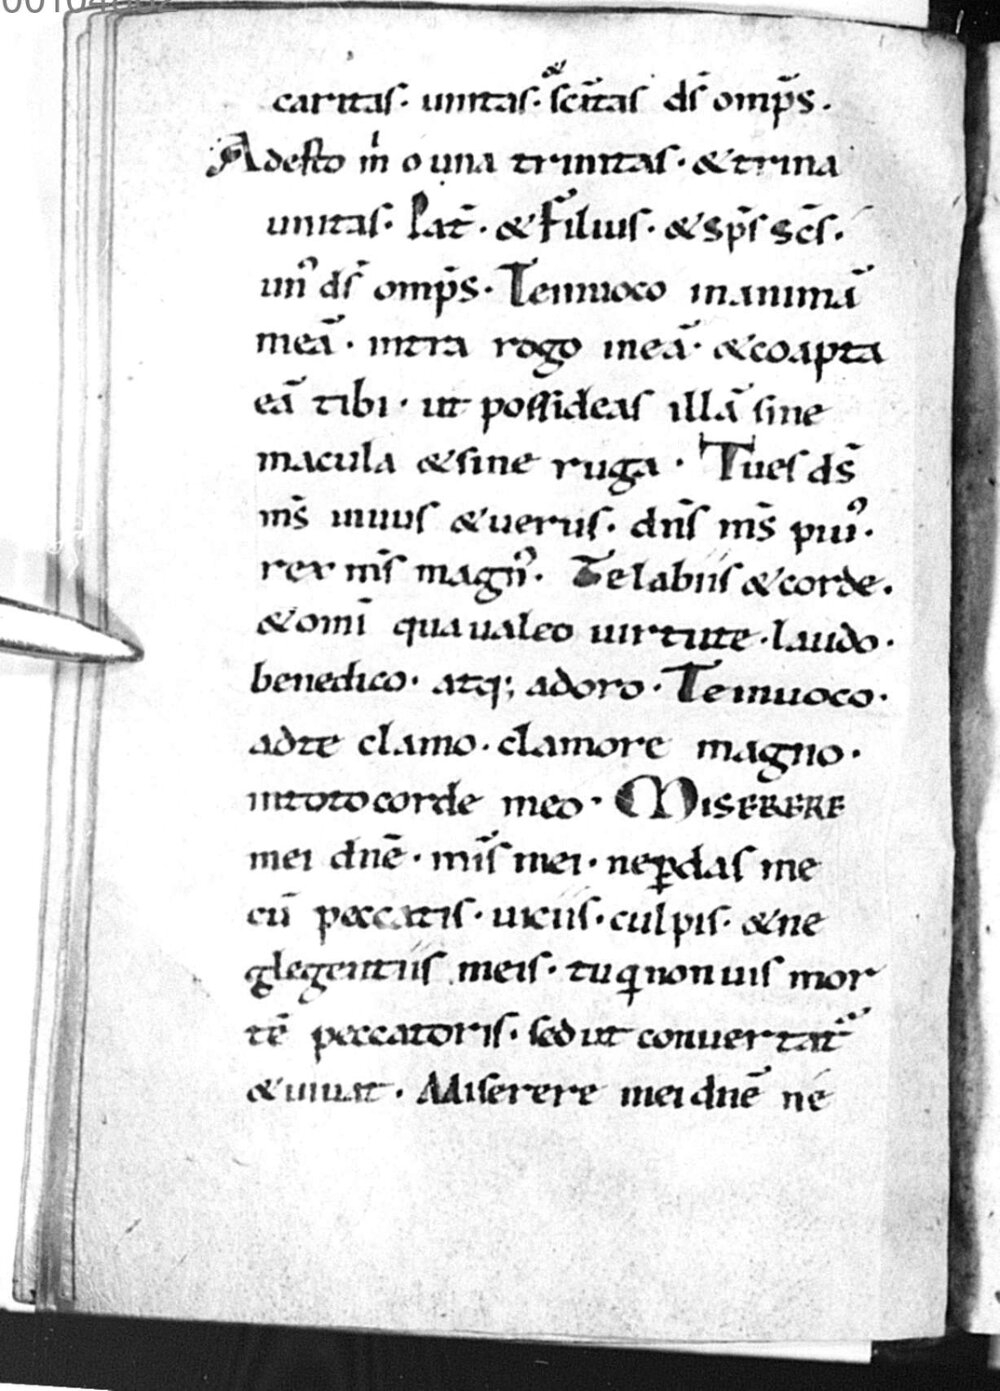 caritas. unitas. sc̄itas ds̄ omp̄s.
Adesto m̄ o una trinitas. & trina
unitas. Pat̄. & Filius. & sp̄s sc̄s.
un᾽ ds̄ omp̄s. Te inuoco in animā
meā. intra rogo in eā. & coapta
eā tibi. ut possideas illā sine
macula & sine ruga. Tu es ds̄
ms̄ uiuus & uerus. dn̄s ms̄ piu᾽.
rex ms̄ magn᾽. Te labiis & corde.
& om̄i qua ualeo uirtute. laudo.
benedico. atq; adoro. Te inuoco.
ad te clamo. clamore magno.
in toto corde meo. MISERERE
mei dn̄e. mis̄ mei. ne ꝑdas me
cū peccatis. uiciis. culpis. & ne
glegentiis meis. tu qui non uis mor
tē peccatoris. sed ut conuertat᾽
& uiuat. Miserere mei dn̄e ne